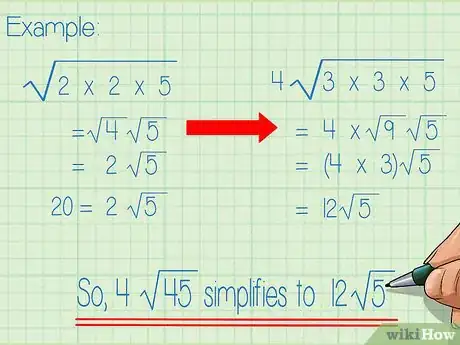 Example:
√2 x 2 x 5
= √4 √5
= 2 √5
20 = 2 √5
4 √3 x 3 x 5
= 4 x √9 √5
= (4 x 3)√5
= 12√5
So, 4 √45 simplifies to 12 √5
wikiHow